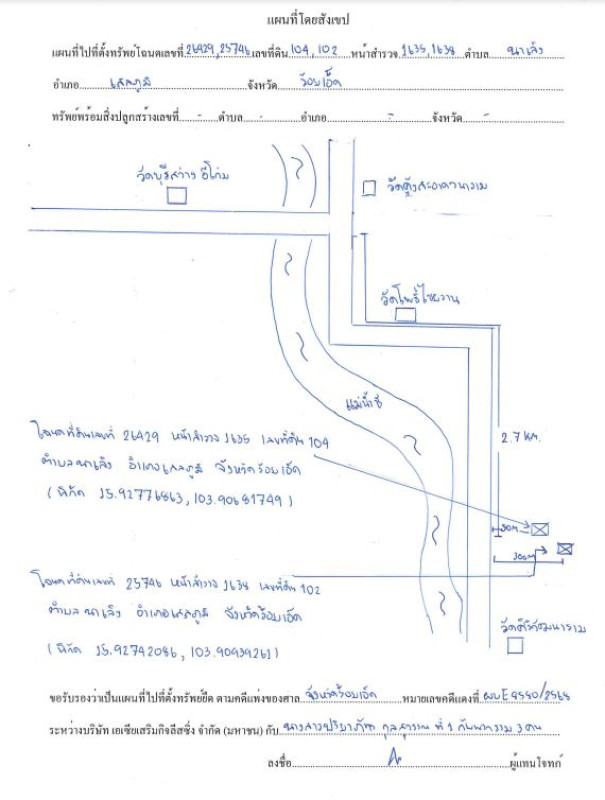 แผนที่โดยสังเขป
แผนที่ไปที่ตั้งทรัพย์โฉนดเลขที่ 26429, 25746 เลขที่ดิน 104, 102 หน้าสำรวจ 1635, 1634 ตำบล นาเลิง
อำเภอ เสลภูมิ จังหวัด ร้อยเอ็ด
ทรัพย์พร้อมสิ่งปลูกสร้างเลขที่ - ตำบล - อำเภอ - จังหวัด -
วัดบุรีสว่าง อีโก่ม
วัดโพธิ์ไทรงาม
แม่น้ำชี
2.7 KM.
โฉนดที่ดินเลขที่ 26429 หน้าสำรวจ 1635 เลขที่ดิน 104
ตำบลนาเลิง อำเภอเสลภูมิ จังหวัดร้อยเอ็ด
(พิกัด 15.92776863, 103.90681749)
50m
300m
โฉนดที่ดินเลขที่ 25746 หน้าสำรวจ 1634 เลขที่ดิน 102
ตำบลนาเลิง อำเภอเสลภูมิ จังหวัดร้อยเอ็ด
(พิกัด 15.92742086, 103.90939261)
ขอรับรองว่าเป็นแผนที่ไปที่ตั้งทรัพย์ยึด ตามคดีแพ่งของศาล จังหวัดร้อยเอ็ด หมายเลขคดีแดงที่ ผบE4550/2564
ระหว่างบริษัท เอเซียเสริมกิจลีสซิ่ง จำกัด (มหาชน) กับ นางสาว ที่ 1 กับพวกรวม 3 คน
ลงชื่อ ผู้แทนโจทก์